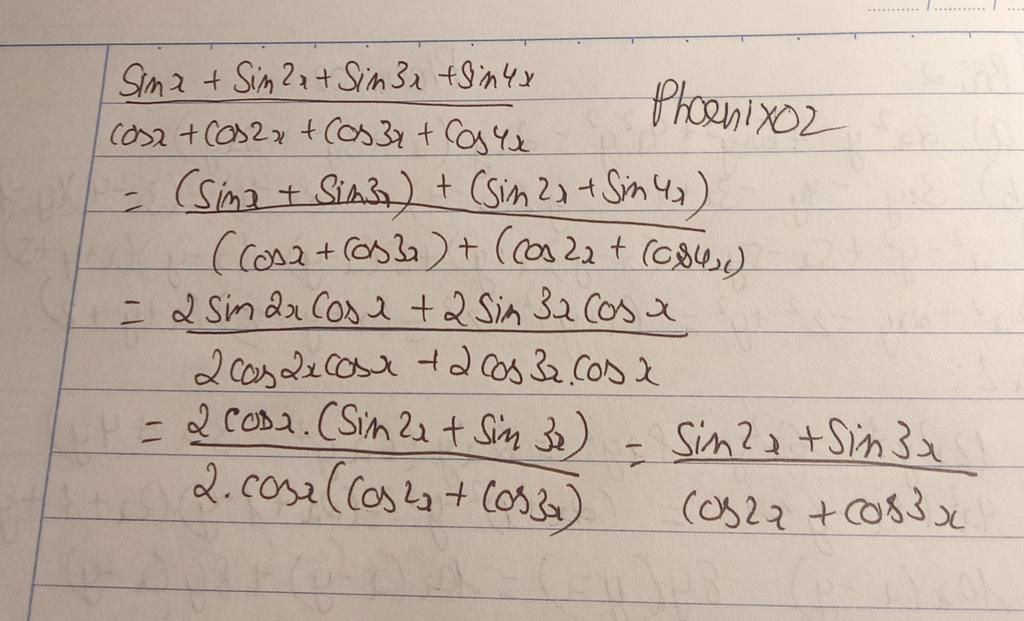 Sinx + Sin2x + Sin3x + Sin4x
cosx + cos2x + cos3x + cos4x
Phoenix02
= (Sinx + Sin3x) + (Sin2x + Sin4x)
(cosx + cos3x) + (cos2x + cos4x)
= 2 Sin 2x Cos x + 2 Sin 3x Cos x
2 cos 2x cosx + 2 cos 3x. cos x
= 2 cosx. (Sin 2x + Sin 3x) = Sin 2x + Sin 3x
2. cosx (cos2x + cos3x) cos2x + cos3x